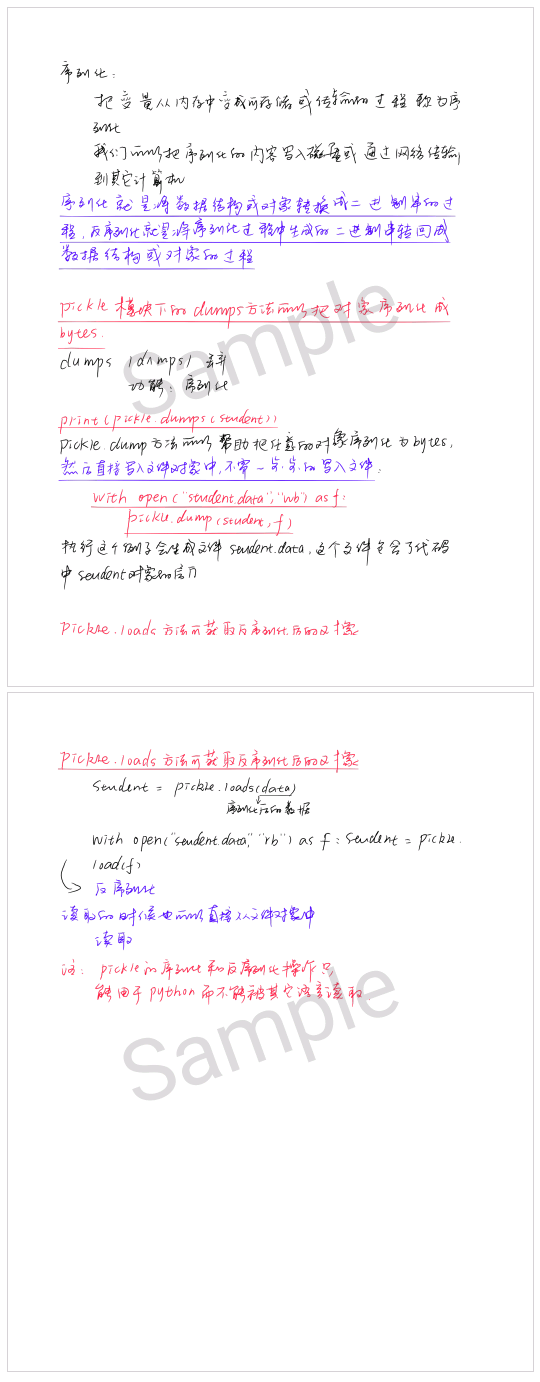 序列化：
把变量从内存中变成可存储或传输的过程称为序
列化
我们可以把序列化的内容写入磁盘或通过网络传输
到其它计算机
序列化就是将数据结构或对象转换成二进制串的过
程，反序列化就是将序列化过程中生成的二进制串转回成
数据结构或对象的过程
pickle 模块下的 dumps方法可以把对象序列化成
bytes.
dumps /dʌmps/
功能：序列化
print(pickle.dumps(student))
pickle.dump方法可以帮助把任意的对象序列化为bytes,
然后直接写入文件对象中,不需一步步的写入文件.
with open("student.data","wb") as f:
pickle.dump(student, f)
执行这个例子会生成文件 student.data, 这个文件包含了代码
中 student对象的信息
pickle.loads 方法可获取反序列化后的对象
pickle.loads 方法可获取反序列化后的对象
student = pickle.loads(data)
序列化后的数据
with open("student.data", "rb") as f: student = pickle.
load(f)
反序列化
读取的时候也可以直接从文件对象中
读取
注: pickle的序列化和反序列化操作只
能用于python而不能被其它语言读取.
Sample
Sample